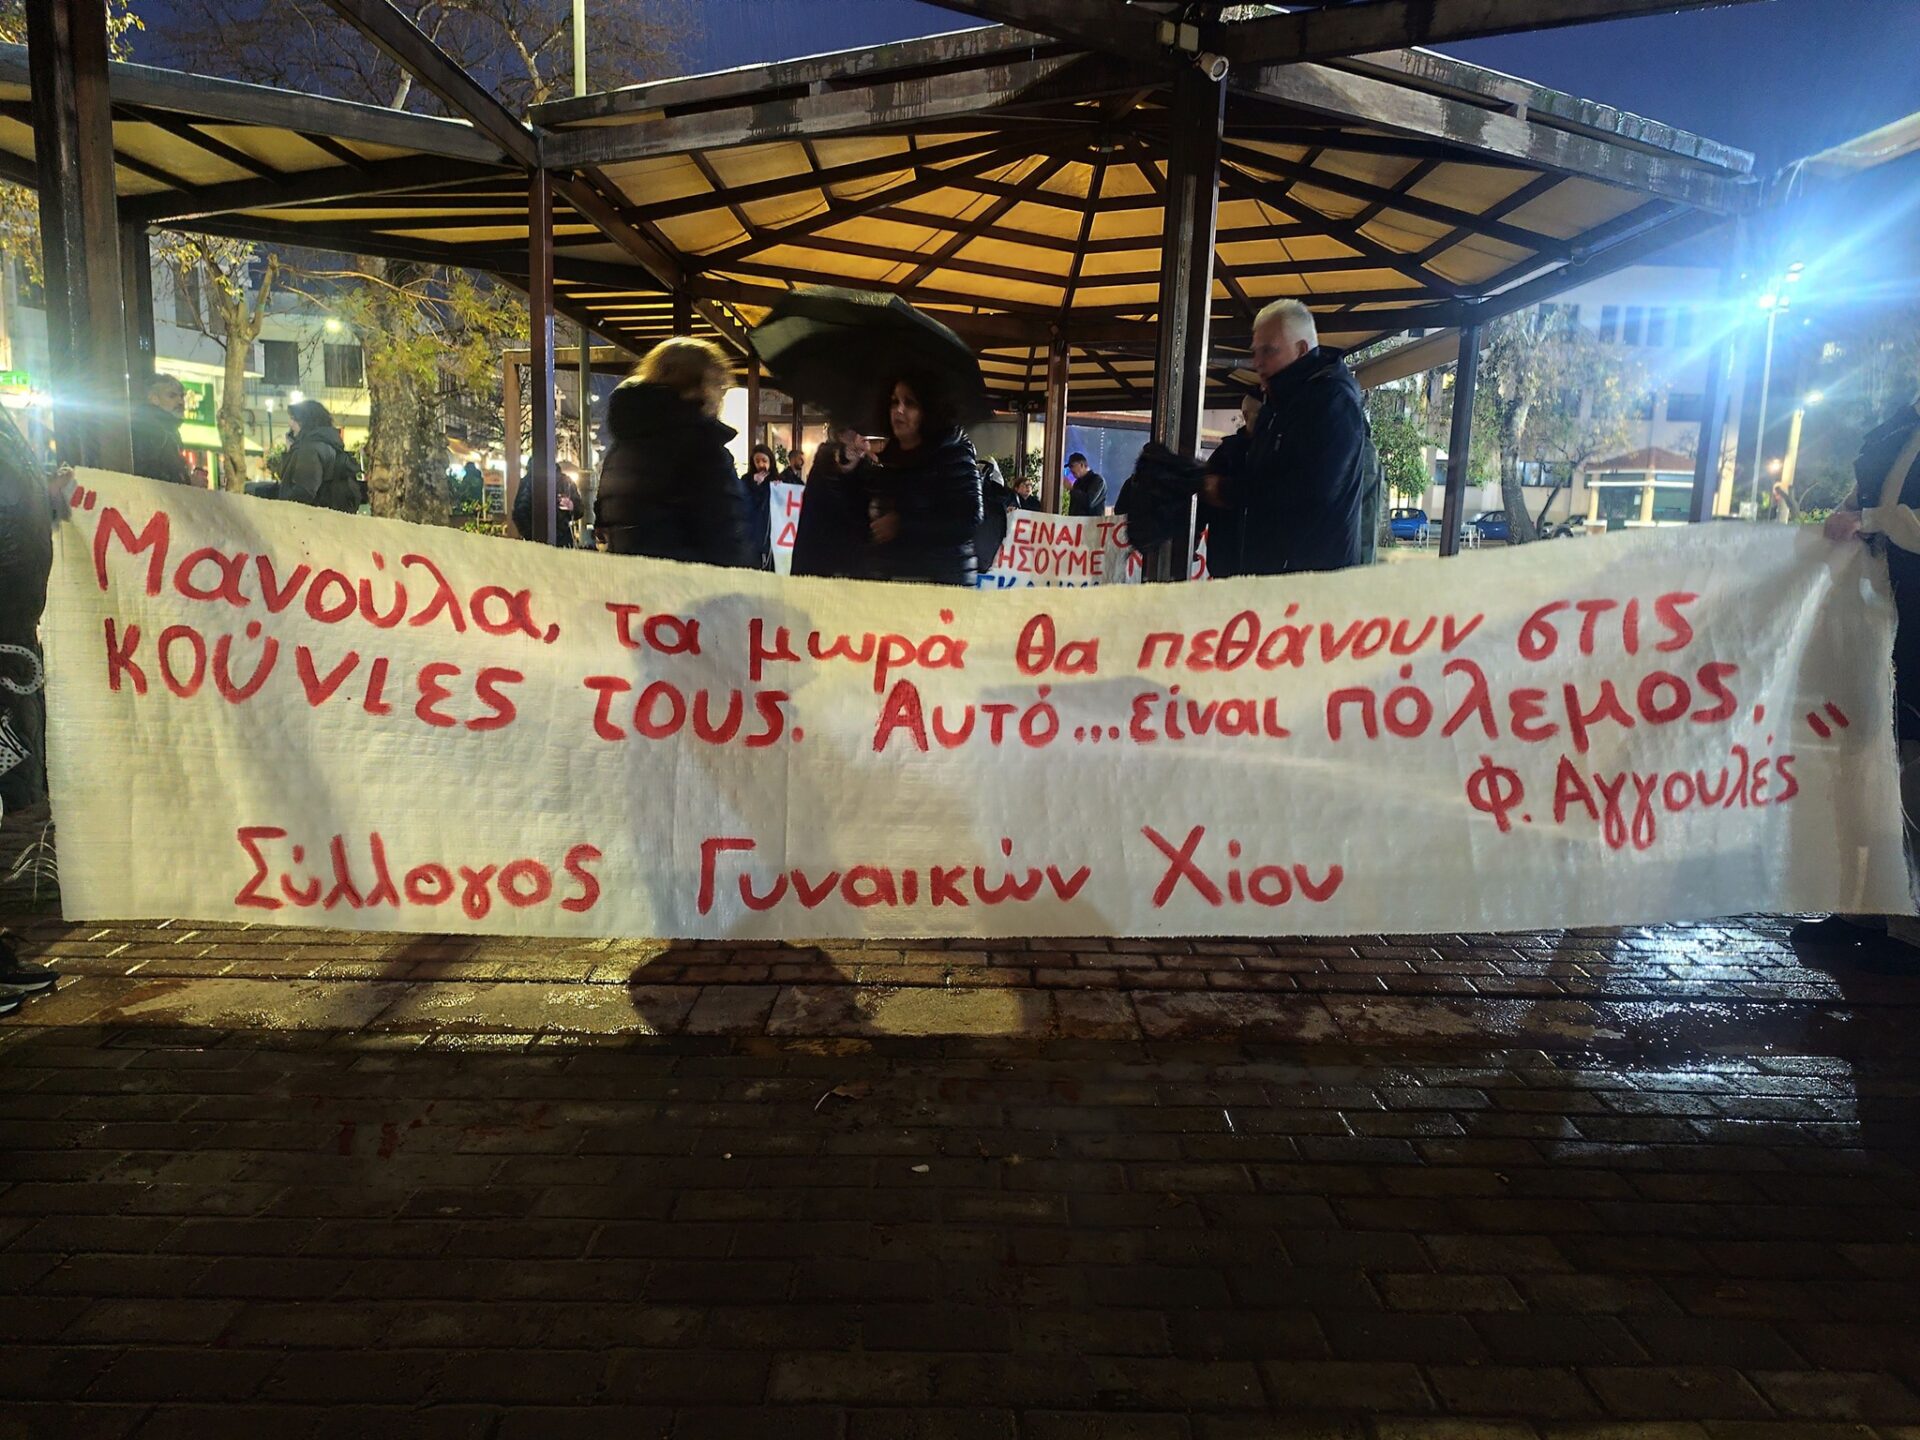 "Μανούλα, τα μωρά θα πεθάνουν στις
κούνιες τους. Αυτό...είναι πόλεμος."
Φ. Αγγουλές
Σύλλογος Γυναικών Χίου
Η
ΕΙΝΑΙ ΤΟ